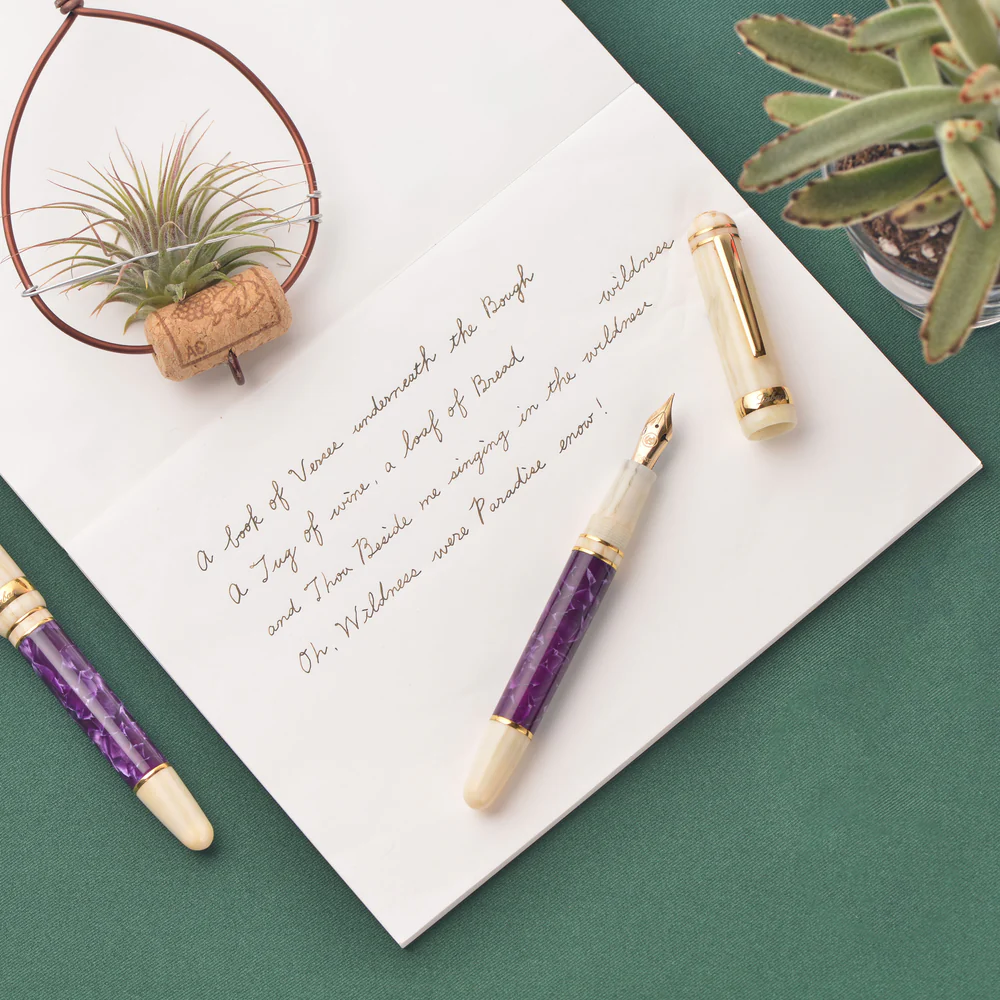 A book of Verse underneath the Bough
A Jug of wine, a loaf of Bread
wildness
and Thou Beside me singing in the wildness
Oh, Wildness were Paradise enow!